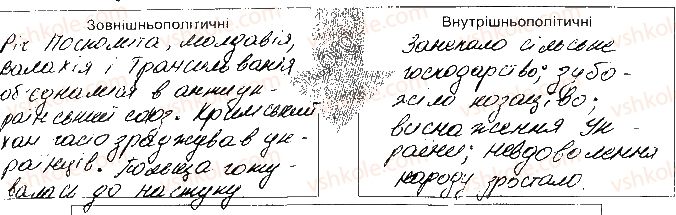 Зовнішньополітичні
Річ Посполита, Молдавія,
Валахія і Трансильванія
об'єдналися в антиук-
раїнський союз. Кримський
хан часто зраджував ук-
раїнців. Польща готу-
валась до наступу.
Внутрішньополітичні
Занепало сільське
господарство; зубо-
жіло козацтво;
виснаження Ук-
раїни; невдоволення
народу зростало.